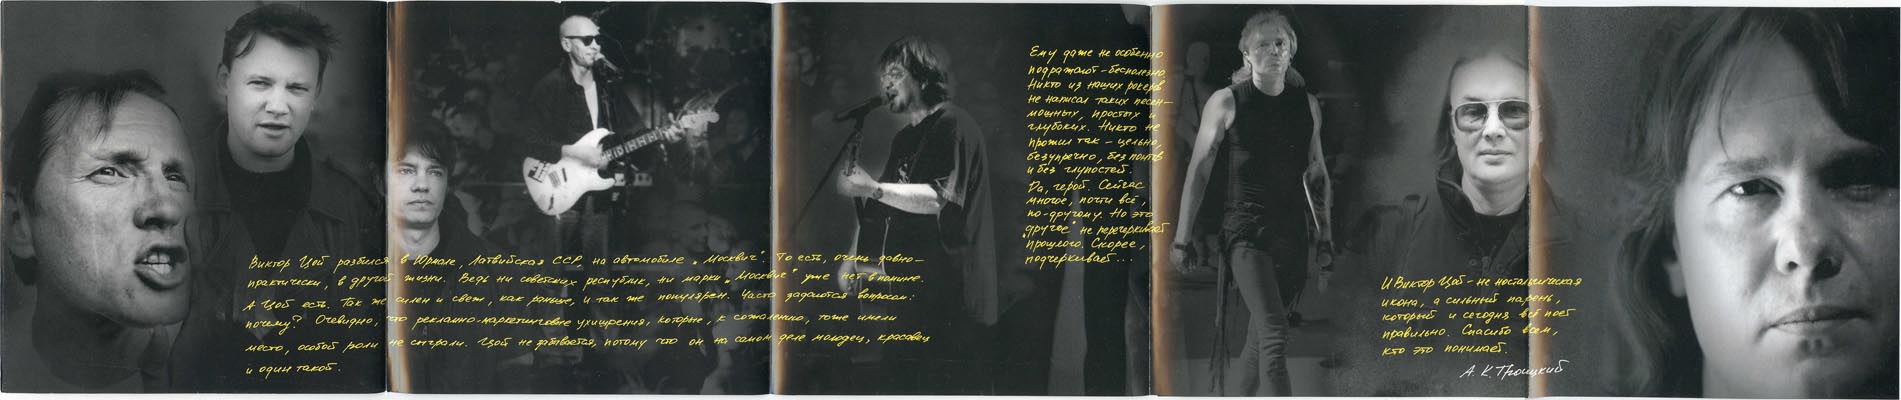 Виктор Цой разбился в Юрмале, Латвийская ССР, на автомобиле „Москвич“. То есть, очень давно –
практически, в другой жизни. Ведь ни советских республик, ни марки „Москвич“ уже нет в помине.
А Цой есть. Так же силен и свеж, как раньше, и так же популярен. Часто задаются вопросом:
почему? Очевидно, что рекламно-маркетинговые ухищрения, которые, к сожалению, тоже имели
место, особой роли не сыграли. Цой не забывается, потому что он на самом деле молодец, красавец
и один такой.
Ему даже не особенно
подражают – бесполезно.
Никто из наших рокеров
не написал таких песен –
мощных, простых и
глубоких. Никто не
прожил так – цельно,
безупречно, без понтов
и без глупостей.
Да, герой. Сейчас
многое, почти всё,
по-другому. Но это
„другое“ не перечеркивает
прошлого. Скорее,
подчеркивает...
И Виктор Цой – не ностальгическая
икона, а сильный парень,
который и сегодня всё поёт
правильно. Спасибо всем,
кто это понимает.
А. К. Троицкий